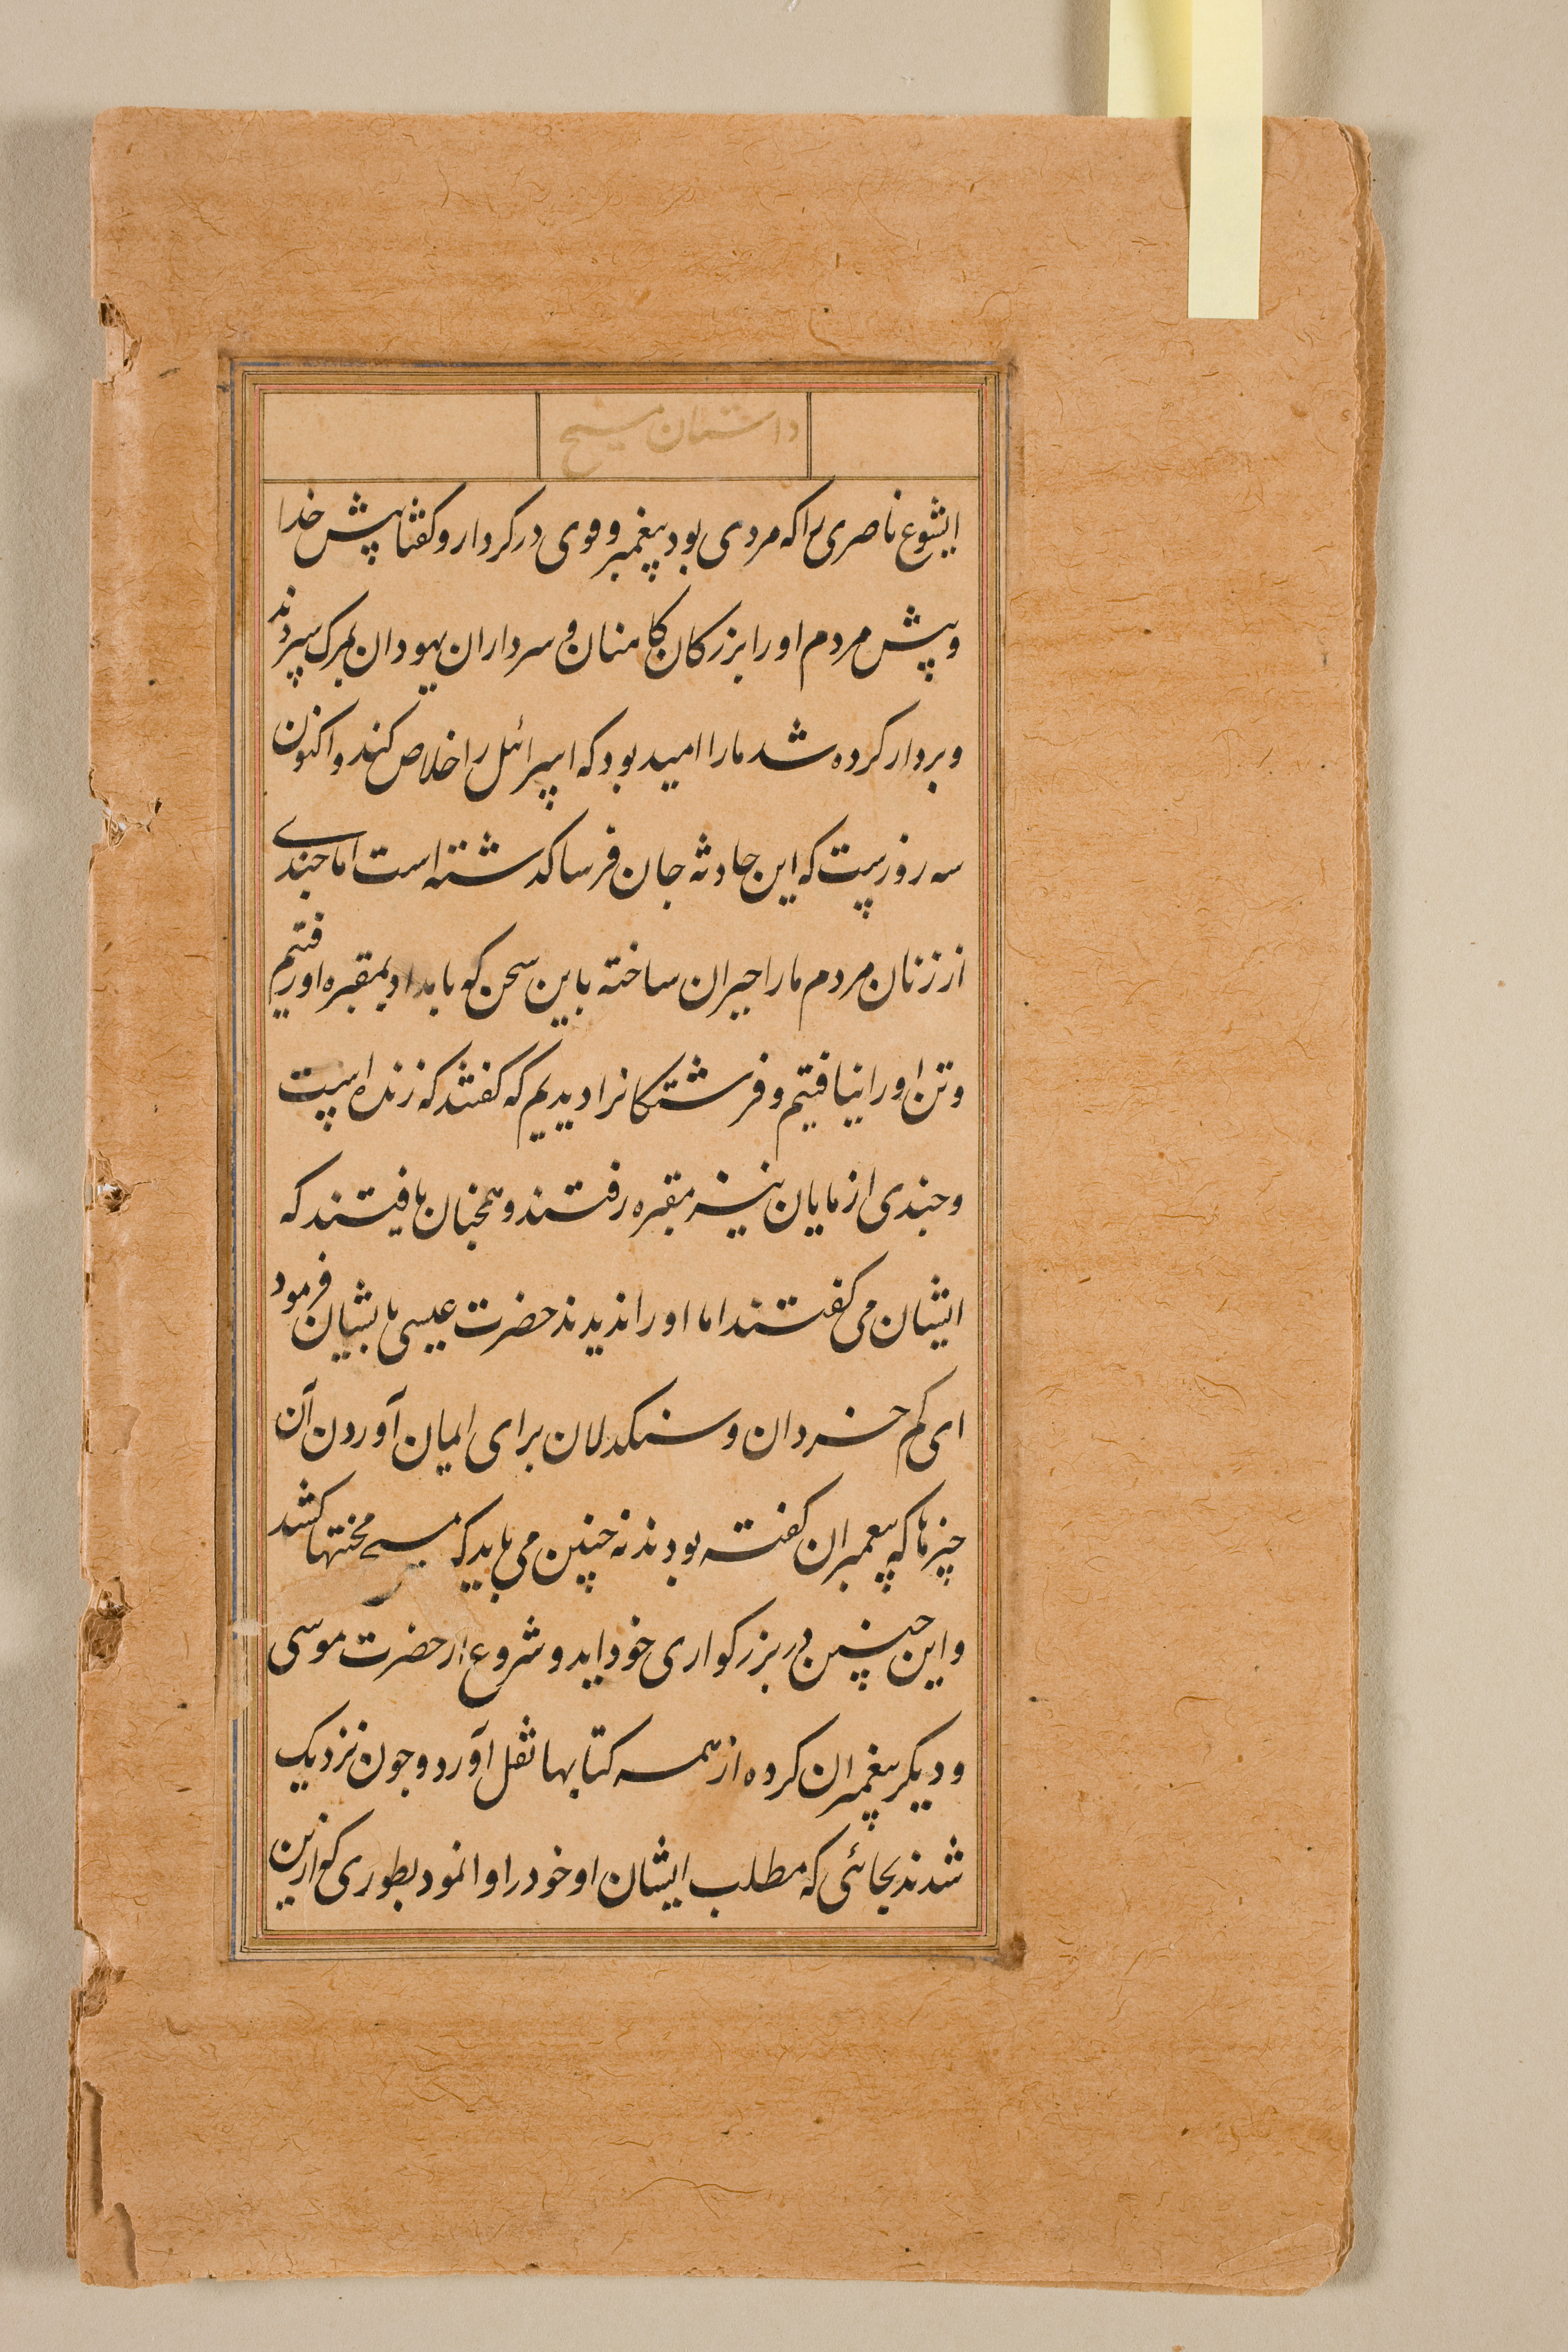 داستان مسیح
ایشوع ناصری را که مردی بود پیغمبر و قوی در کردار و کفتا پیش خدا
و پیش مردم او را بزرکان کاهنان و سرداران یهودان بمرک سپردند
و بردار کرده شد ما را امید بود که اسرائل را خلاص کند و اکنون
سه روزست که این حادثه جان فرسا کدشته است اما جندے
از زنان مردم ما را حیران ساخته باین سخن کو بامداد بمقبره او رفتیم
و تن او را نیافتیم و فرشتکانرا دیدیم که کفتند که زنده است
و جندی از مایان نیز بمقبره رفتند و همجنان یافتند که
ایشان می کفتند اما او را ندیدند حضرت عیسی بایشان فرمود
ای کم خردان و سنکدلان برای ایمان آوردن آن
چیزها که پیغمبران کفته بودند نه چنین می باید که مسیح محنتها کشد
و این جنین در بزرکواری خود اید و شروع از حضرت موسی
و دیکر پیغمبران کرده از همه کتابها نقل آورد و جون نزدیک
شدند بجائی که مطلب ایشان او خود را وانمود بطوری کو ازین